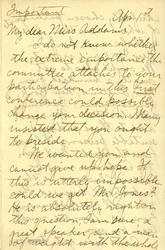 Important
Apr. 1st
My dear Miss Addams:
I do not know whether
the extreme importance the
committee attaches to your
participation in this
conference could possibly
change your decision. Many
insisted that you ought
to preside.
We want you and
cannot give up hope. If
this is utterly impossible
could we get Mr. Jones?
He is absolutely right on
this question, I am sure a
great speaker, and a man
of weight with the